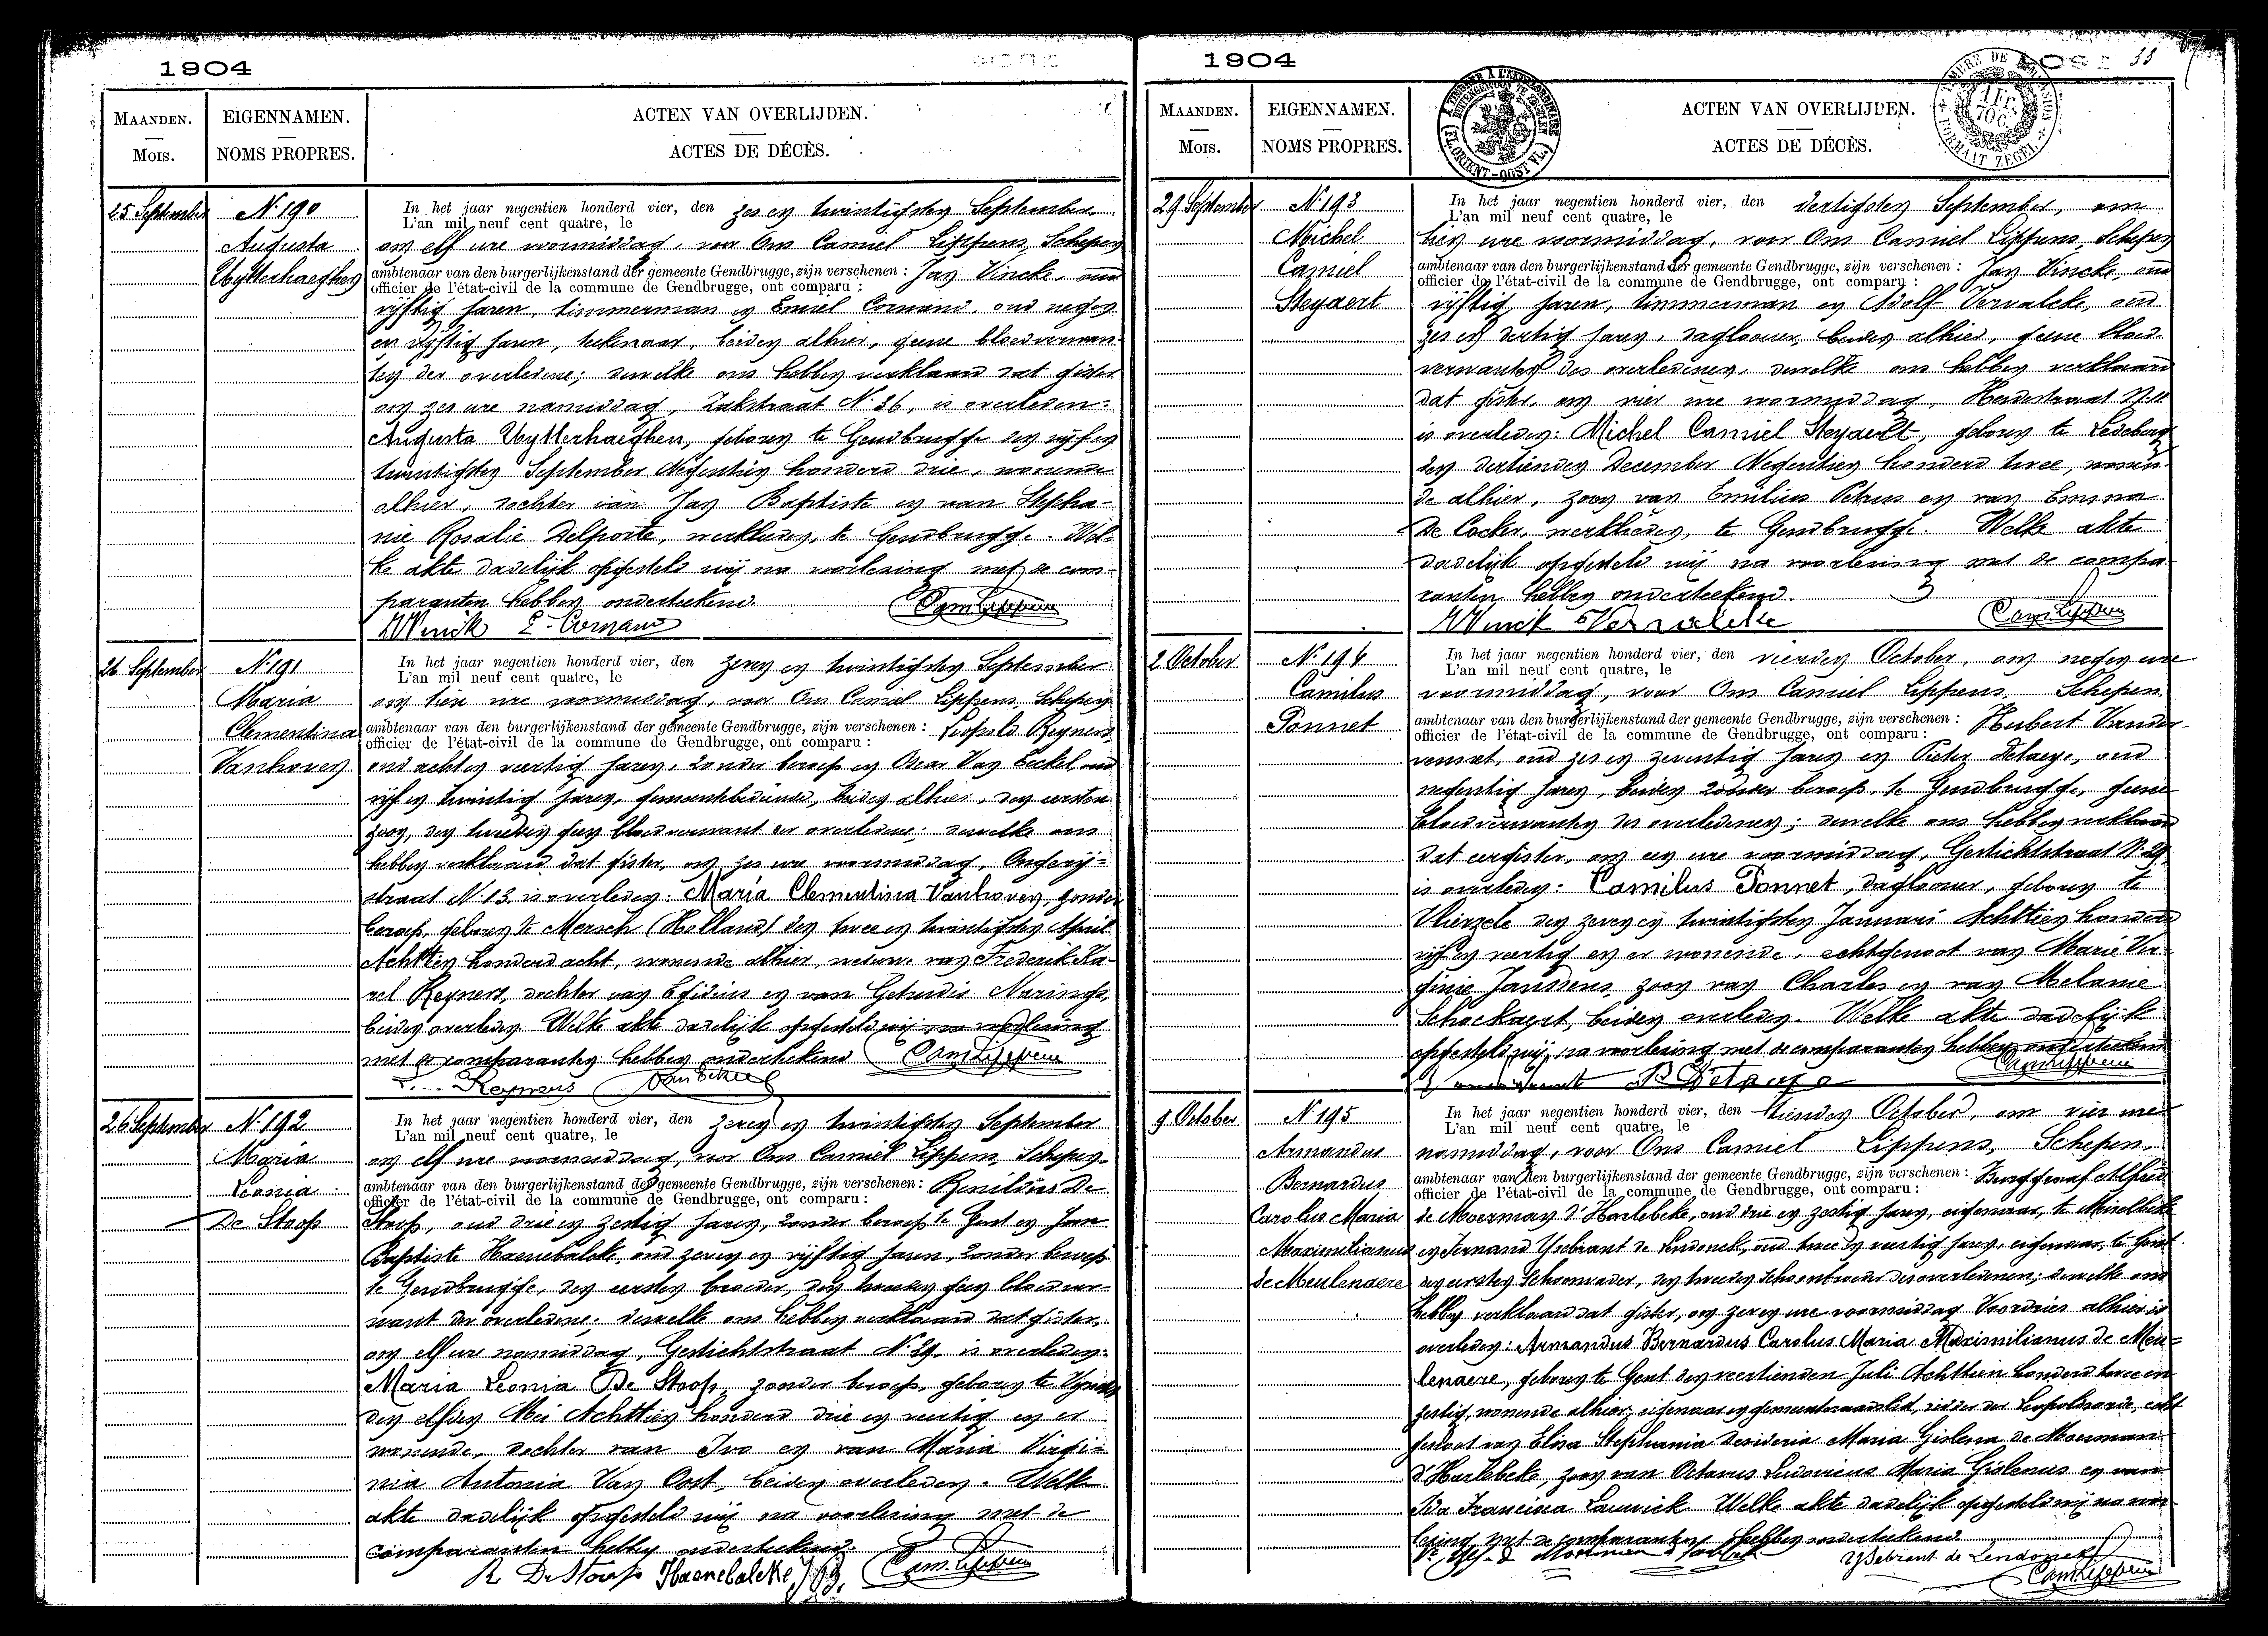 1904
MAANDEN.
MOIS.
EIGENNAMEN.
NOMS PROPRES.
ACTEN VAN OVERLIJDEN.
ACTES DE DÉCÈS.
25 September
N. 190
Augusta
Uytterhaeghen
In het jaar negentien honderd vier, den zes en twintigsten September
L'an mil neuf cent quatre, le
om elf ure voormiddag, voor Ons Camiel Lippens, Schepen
ambtenaar van den burgerlijkenstand der gemeente Gendbrugge, zijn verschenen : Jan Vincke, oud
officier de l'état-civil de la commune de Gendbrugge, ont comparu :
vijftig jaren, timmerman en Emiel Cornand, oud negen
en vijftig jaren, teekenaar, beiden alhier, geene bloedverwan-
ten der overledene; dewelke ons hebben verklaard dat gister
om zes ure namiddag, Zakstraat N. 36, is overleden:
Augusta Uytterhaeghen, geboren te Gendbrugge den vijf en
twintigsten September Negentien honderd drie, wonende
alhier, dochter van Jan Baptiste en van Stepha-
nie Rosalie Delporte, werklieden, te Gendbrugge. Wel-
ke akte dadelijk opgesteld wij na voorlezing met de com-
paranten hebben onderteekend.
Cam. Lippens
E. Cornand
26 September
N. 191
Maria
Clementina
Vanhoven
In het jaar negentien honderd vier, den zeven en twintigsten September
L'an mil neuf cent quatre, le
om tien ure voormiddag, voor Ons Camiel Lippens, Schepen
ambtenaar van den burgerlijkenstand der gemeente Gendbrugge, zijn verschenen : Leopold Reyners,
officier de l'état-civil de la commune de Gendbrugge, ont comparu :
oud acht en veertig jaren, zonder beroep en Oscar Van Eeckel, oud
vijf en twintig jaren, gemeentebediende, beiden alhier, den eersten
zoon, den tweeden geen bloedverwant der overledene; dewelke ons
hebben verklaard dat gister, om zes ure voormiddag,
straat N. 13 is overleden: Maria Clementina Vanhoven, zonder
beroep, geboren te Mersch (Holland) den twee en twintigsten April
Achttien honderd acht, wonende alhier, weduwe van Frederik Ka-
rel Reyners, dochter van Egidius en van Getrudis
beiden overleden. Welke akte dadelijk opgesteld wij na voorlezing
met de comparanten hebben onderteekend Cam. Lippens
Reyners
26 September
N. 192
Maria
Leonia
De Stoop
In het jaar negentien honderd vier, den zeven en twintigsten September
L'an mil neuf cent quatre, le
om elf ure voormiddag, voor Ons Camiel Lippens, Schepen
ambtenaar van den burgerlijkenstand der gemeente Gendbrugge, zijn verschenen : De
officier de l'état-civil de la commune de Gendbrugge, ont comparu :
Stoop, oud drie en zestig jaren, zonder beroep te Gent en Jean
Baptiste Haenebalcke, oud zeven en vijftig jaren, zonder beroep
te Gendbrugge, den eersten broeder, den tweeden geen bloedver-
want der overledene; dewelke ons hebben verklaard dat gister,
om elf ure namiddag, Gestichtstraat N. 29, is overleden:
Maria Leonia De Stoop, zonder beroep, geboren te
den elfden Mei Achttien honderd drie en veertig en er
wonende, dochter van Ivo en van Maria Virgi-
nia Antonia Van Oost, beiden overleden. Welke
akte dadelijk opgesteld wij na voorlezing met de
comparanten hebben onderteekend.
R De Stoop Haenebalcke J B. Cam. Lippens
1904
33
MAANDEN.
MOIS.
EIGENNAMEN.
NOMS PROPRES.
ACTEN VAN OVERLIJDEN.
ACTES DE DÉCÈS.
29 September
N. 193
Michel
Camiel
Steyaert
In het jaar negentien honderd vier, den dertigsten September, om
L'an mil neuf cent quatre, le
tien ure voormiddag, voor Ons Camiel Lippens, Schepen
ambtenaar van den burgerlijkenstand der gemeente Gendbrugge, zijn verschenen : Jan Vincke, oud
officier de l'état-civil de la commune de Gendbrugge, ont comparu :
vijftig jaren, timmerman en Adolf Vervalcke, oud
zes en dertig jaren, daglooner, beiden alhier, geene bloed-
verwanten des overledenen; dewelke ons hebben verklaard
dat gister, om vier ure voormiddag,
is overleden: Michel Camiel Steyaert, geboren te Ledeberg
den dertienden December Negentien honderd twee, wonen-
de alhier, zoon van Emilius Petrus en van Emma
De Cocker, werklieden, te Gendbrugge. Welke akte
dadelijk opgesteld wij na voorlezing met de compa-
ranten hebben onderteekend.
Vervalcke Cam. Lippens
2 October
N. 194
Camilus
Ponnet
In het jaar negentien honderd vier, den vierden October, om negen ure
L'an mil neuf cent quatre, le
voormiddag, voor Ons Camiel Lippens, Schepen
ambtenaar van den burgerlijkenstand der gemeente Gendbrugge, zijn verschenen : Hubert
officier de l'état-civil de la commune de Gendbrugge, ont comparu :
oud zes en zeventig jaren en Pieter Detaeye, oud
negentig jaren, beiden zonder beroep, te Gendbrugge, geene
bloedverwanten des overledenen; dewelke ons hebben verklaard
dat eergister, om een ure voormiddag, Gestichtstraat N. 29
is overleden: Camilus Ponnet, daglooner, geboren te
Vlierzele den zeven en twintigsten Januari Achttien honderd
vijf en veertig en er wonende, echtgenoot van Marie Vir-
ginie Janssens, zoon van Charles en van Melanie
Schockaert, beiden overleden. Welke akte dadelijk
opgesteld wij na voorlezing met de comparanten hebben onderteekend
Cam. Lippens
9 October
N. 195
Armandus
Bernardus
Carolus Maria
Maximilianus
de Meulenaere
In het jaar negentien honderd vier, den tienden October, om vier ure
L'an mil neuf cent quatre, le
namiddag, voor Ons Camiel Lippens, Schepen
ambtenaar van den burgerlijkenstand der gemeente Gendbrugge, zijn verschenen : Burggraaf Alfred
officier de l'état-civil de la commune de Gendbrugge, ont comparu :
de Moerman d'Harlebeke, oud drie en zestig jaren, eigenaar, te Meirelbeke
en Fernand Ysebrant de Lendonck, oud twee en veertig jaren, eigenaar, te Gent
den eersten Schoonvader, den tweeden Schoonbroeder des overledenen; dewelke ons
hebben verklaard dat gister, om zeven ure voormiddag Voordries alhier is
overleden: Armandus Bernardus Carolus Maria Maximilianus de Meu-
lenaere, geboren te Gent den veertienden Juli Achttien honderd twee en
zestig, wonende alhier, eigenaar en gemeenteraadslid, ridder der Leopoldsorde, echt-
genoot van Elisa Stephania Desideria Maria Gislena de Moerman
d'Harlebeke, zoon van Octavus Ludovicus Maria Gislenus en van
Ida Francisca Lauwick. Welke akte dadelijk opgesteld wij na voor-
lezing met de comparanten hebben onderteekend
Ysebrant de Lendonck
Cam. Lippens